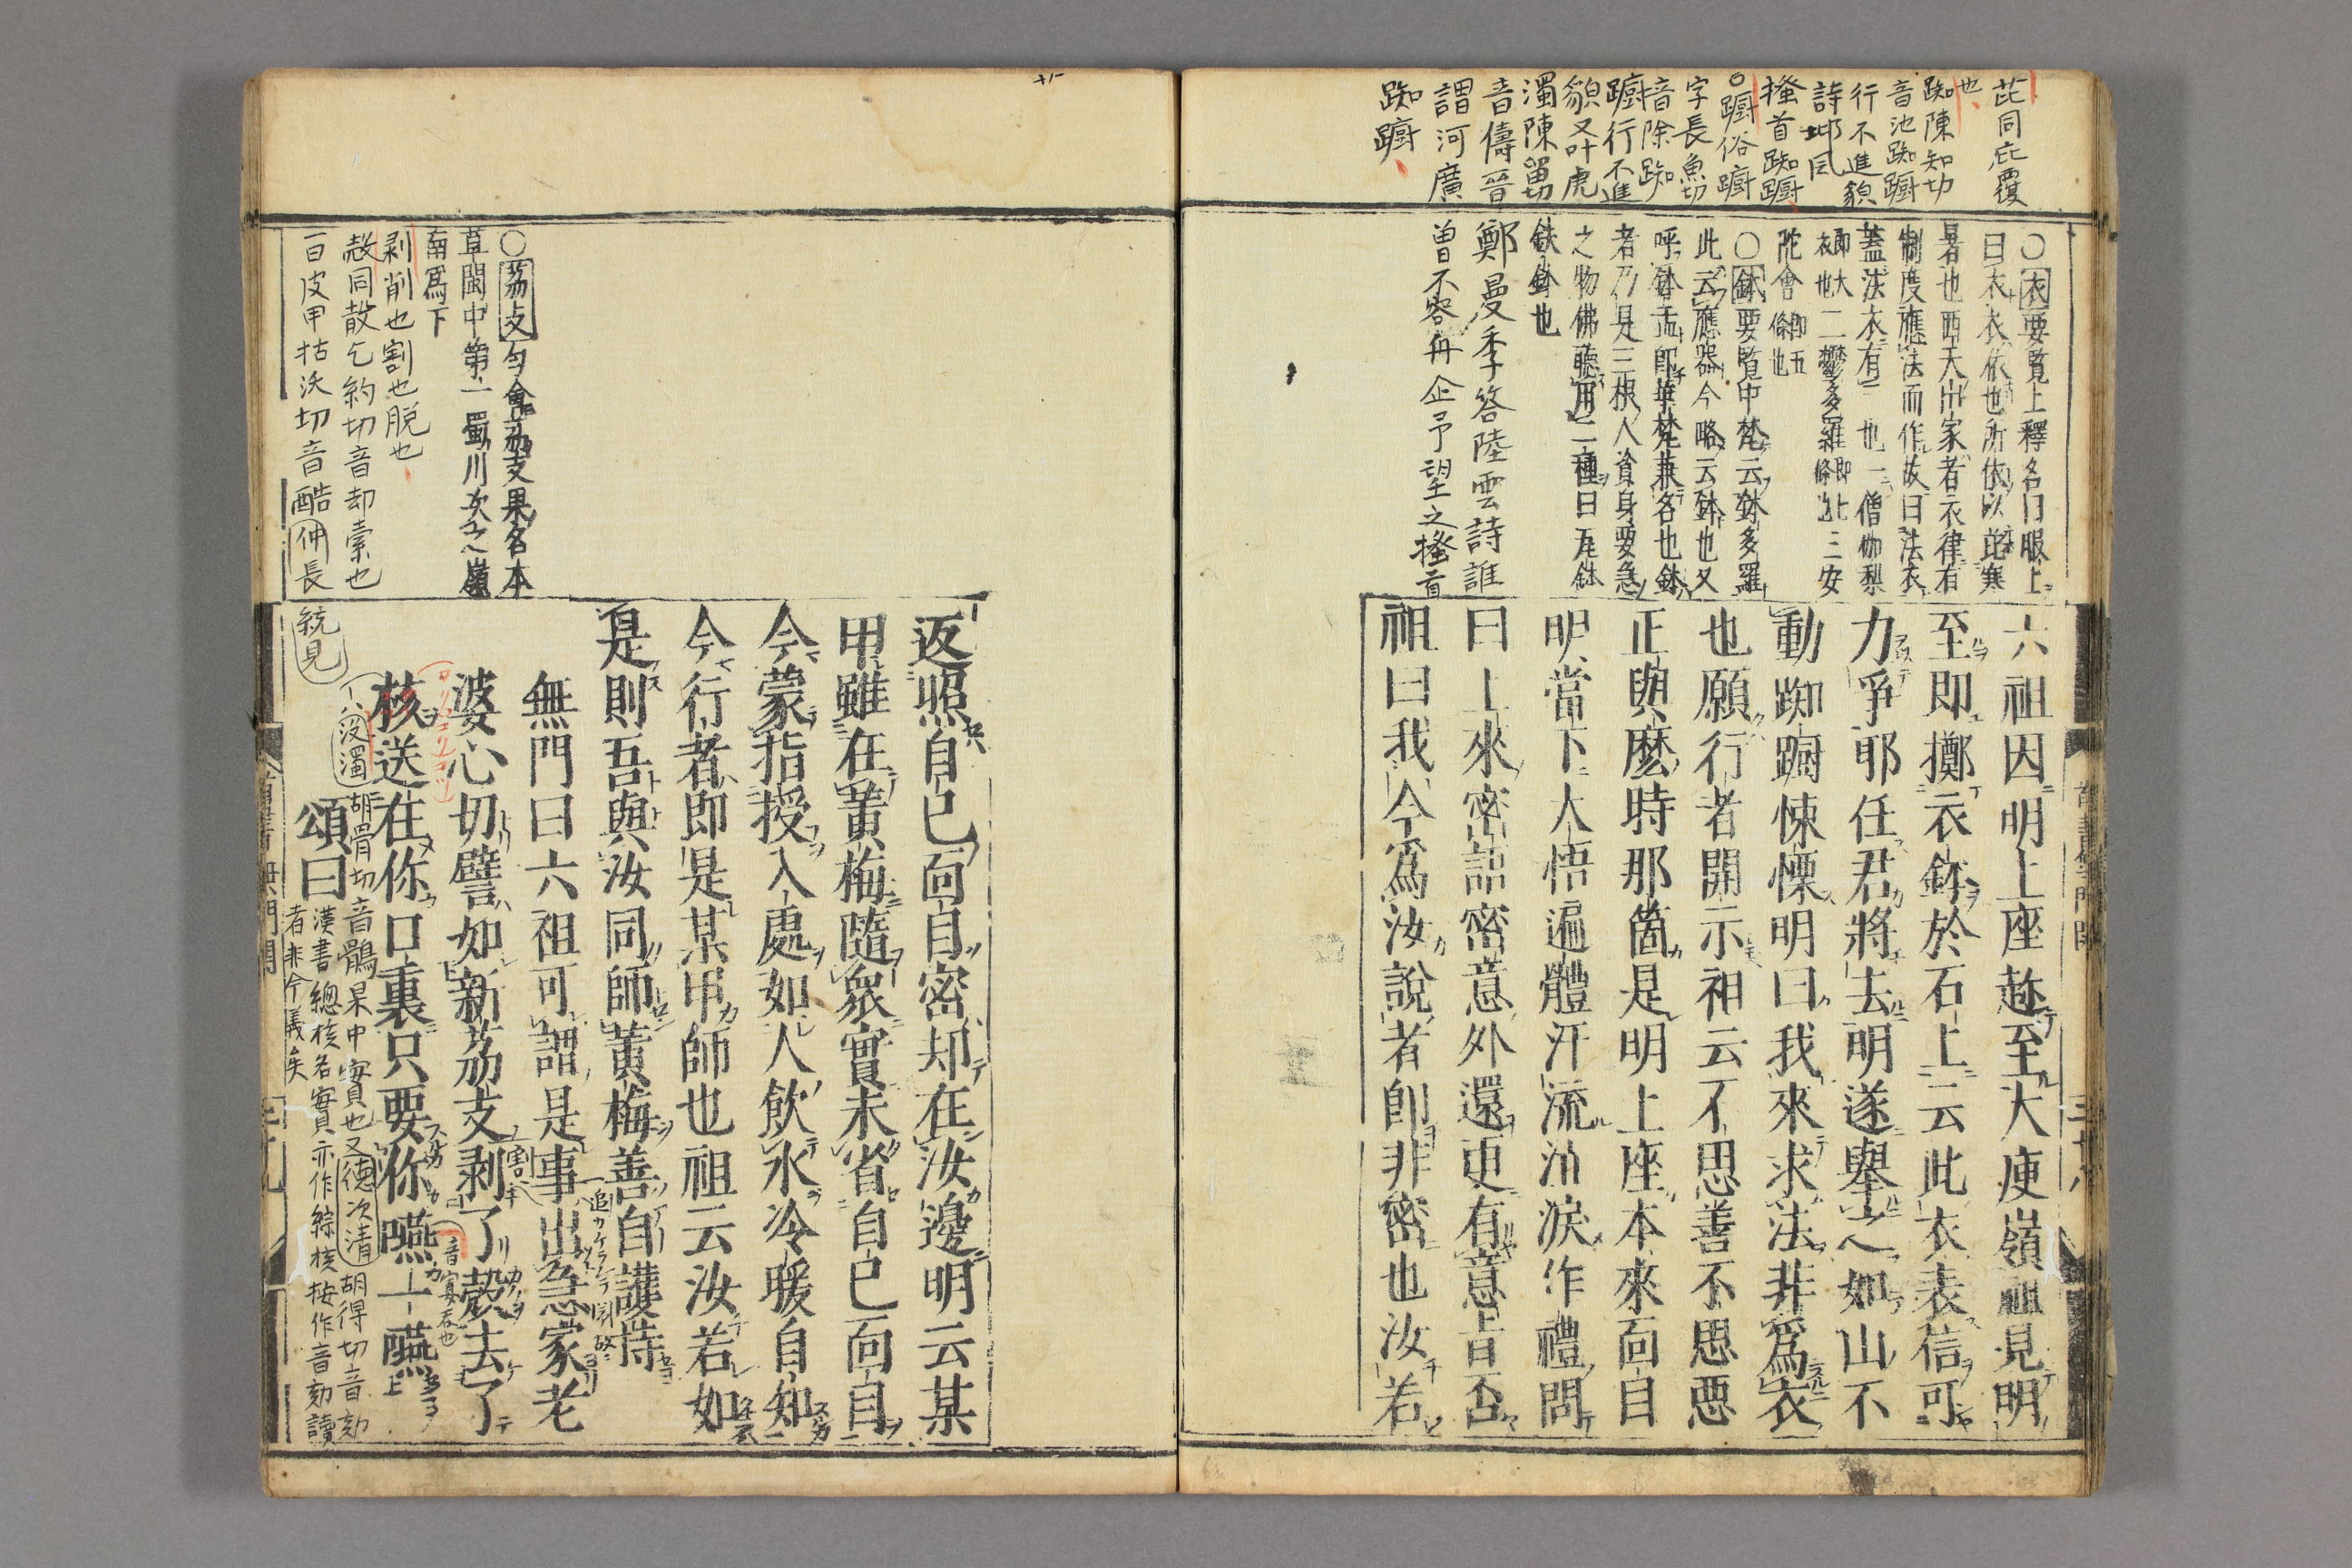 芘同庇覆
也
踟陳知切
音池踟躕
行不進貌
詩邶風
搔首踟躕
○躕俗躕
字長魚切
音除踟
躕行不進
貌又叶虎
濁陳留切
音儔晉
謂河廣
踟躕
○衣要覧上釋名曰服上
曰衣衣依也所依以芘寒
暑也西天出家者衣律有
制度應法而作故曰法衣
蓋法衣有三也一僧伽梨
即大衣也二鬱多羅即七條也三安
陀會即五條也
○鉢要覧中梵云鉢多羅
此云應器今略云鉢也又
呼鉢盂即華梵兼名也鉢
者乃是三根人資身要急
之物佛聽用二種曰瓦鉢
鉄鉢也
鄭曼季答陸雲詩誰
曾不容舟企予望之搔首
六祖因明上座趂至大庾嶺祖見明
至即擲衣鉢於石上云此衣表信可
力爭耶任君將去明遂擧之如山不
動踟蹰悚慄明曰我來求法非爲衣
也願行者開示祖云不思善不思惡
正與麼時那箇是明上座本來面目
明當下大悟遍體汗流泣淚作禮問
曰上來密語密意外還更有意旨否
祖曰我今爲汝說者即非密也汝若
○茘支勻會茘支果名本
草閩中第一蜀川次之嶺
南爲下
剥削也割也脱也
殻同㱿乞約切音却素也
一曰皮甲枯沃切音酷仲長
統見
返照自己面目密却在汝邊明云某
甲雖在黄梅隨衆實未省自己面目
今蒙指授入處如人飲水冷暖自知
今行者即是某甲師也祖云汝若如
是則吾與汝同師黄梅善自護持
無門曰六祖可謂是事出急家老
婆心切譬如新茘支剥了殻去了
核送在你口裏只要你嚥一嚥
頌曰
胡骨切音鶻果中實也又德次清胡得切音劾
漢書總核名實亦作綜核按作音劾讀
者非今義矣